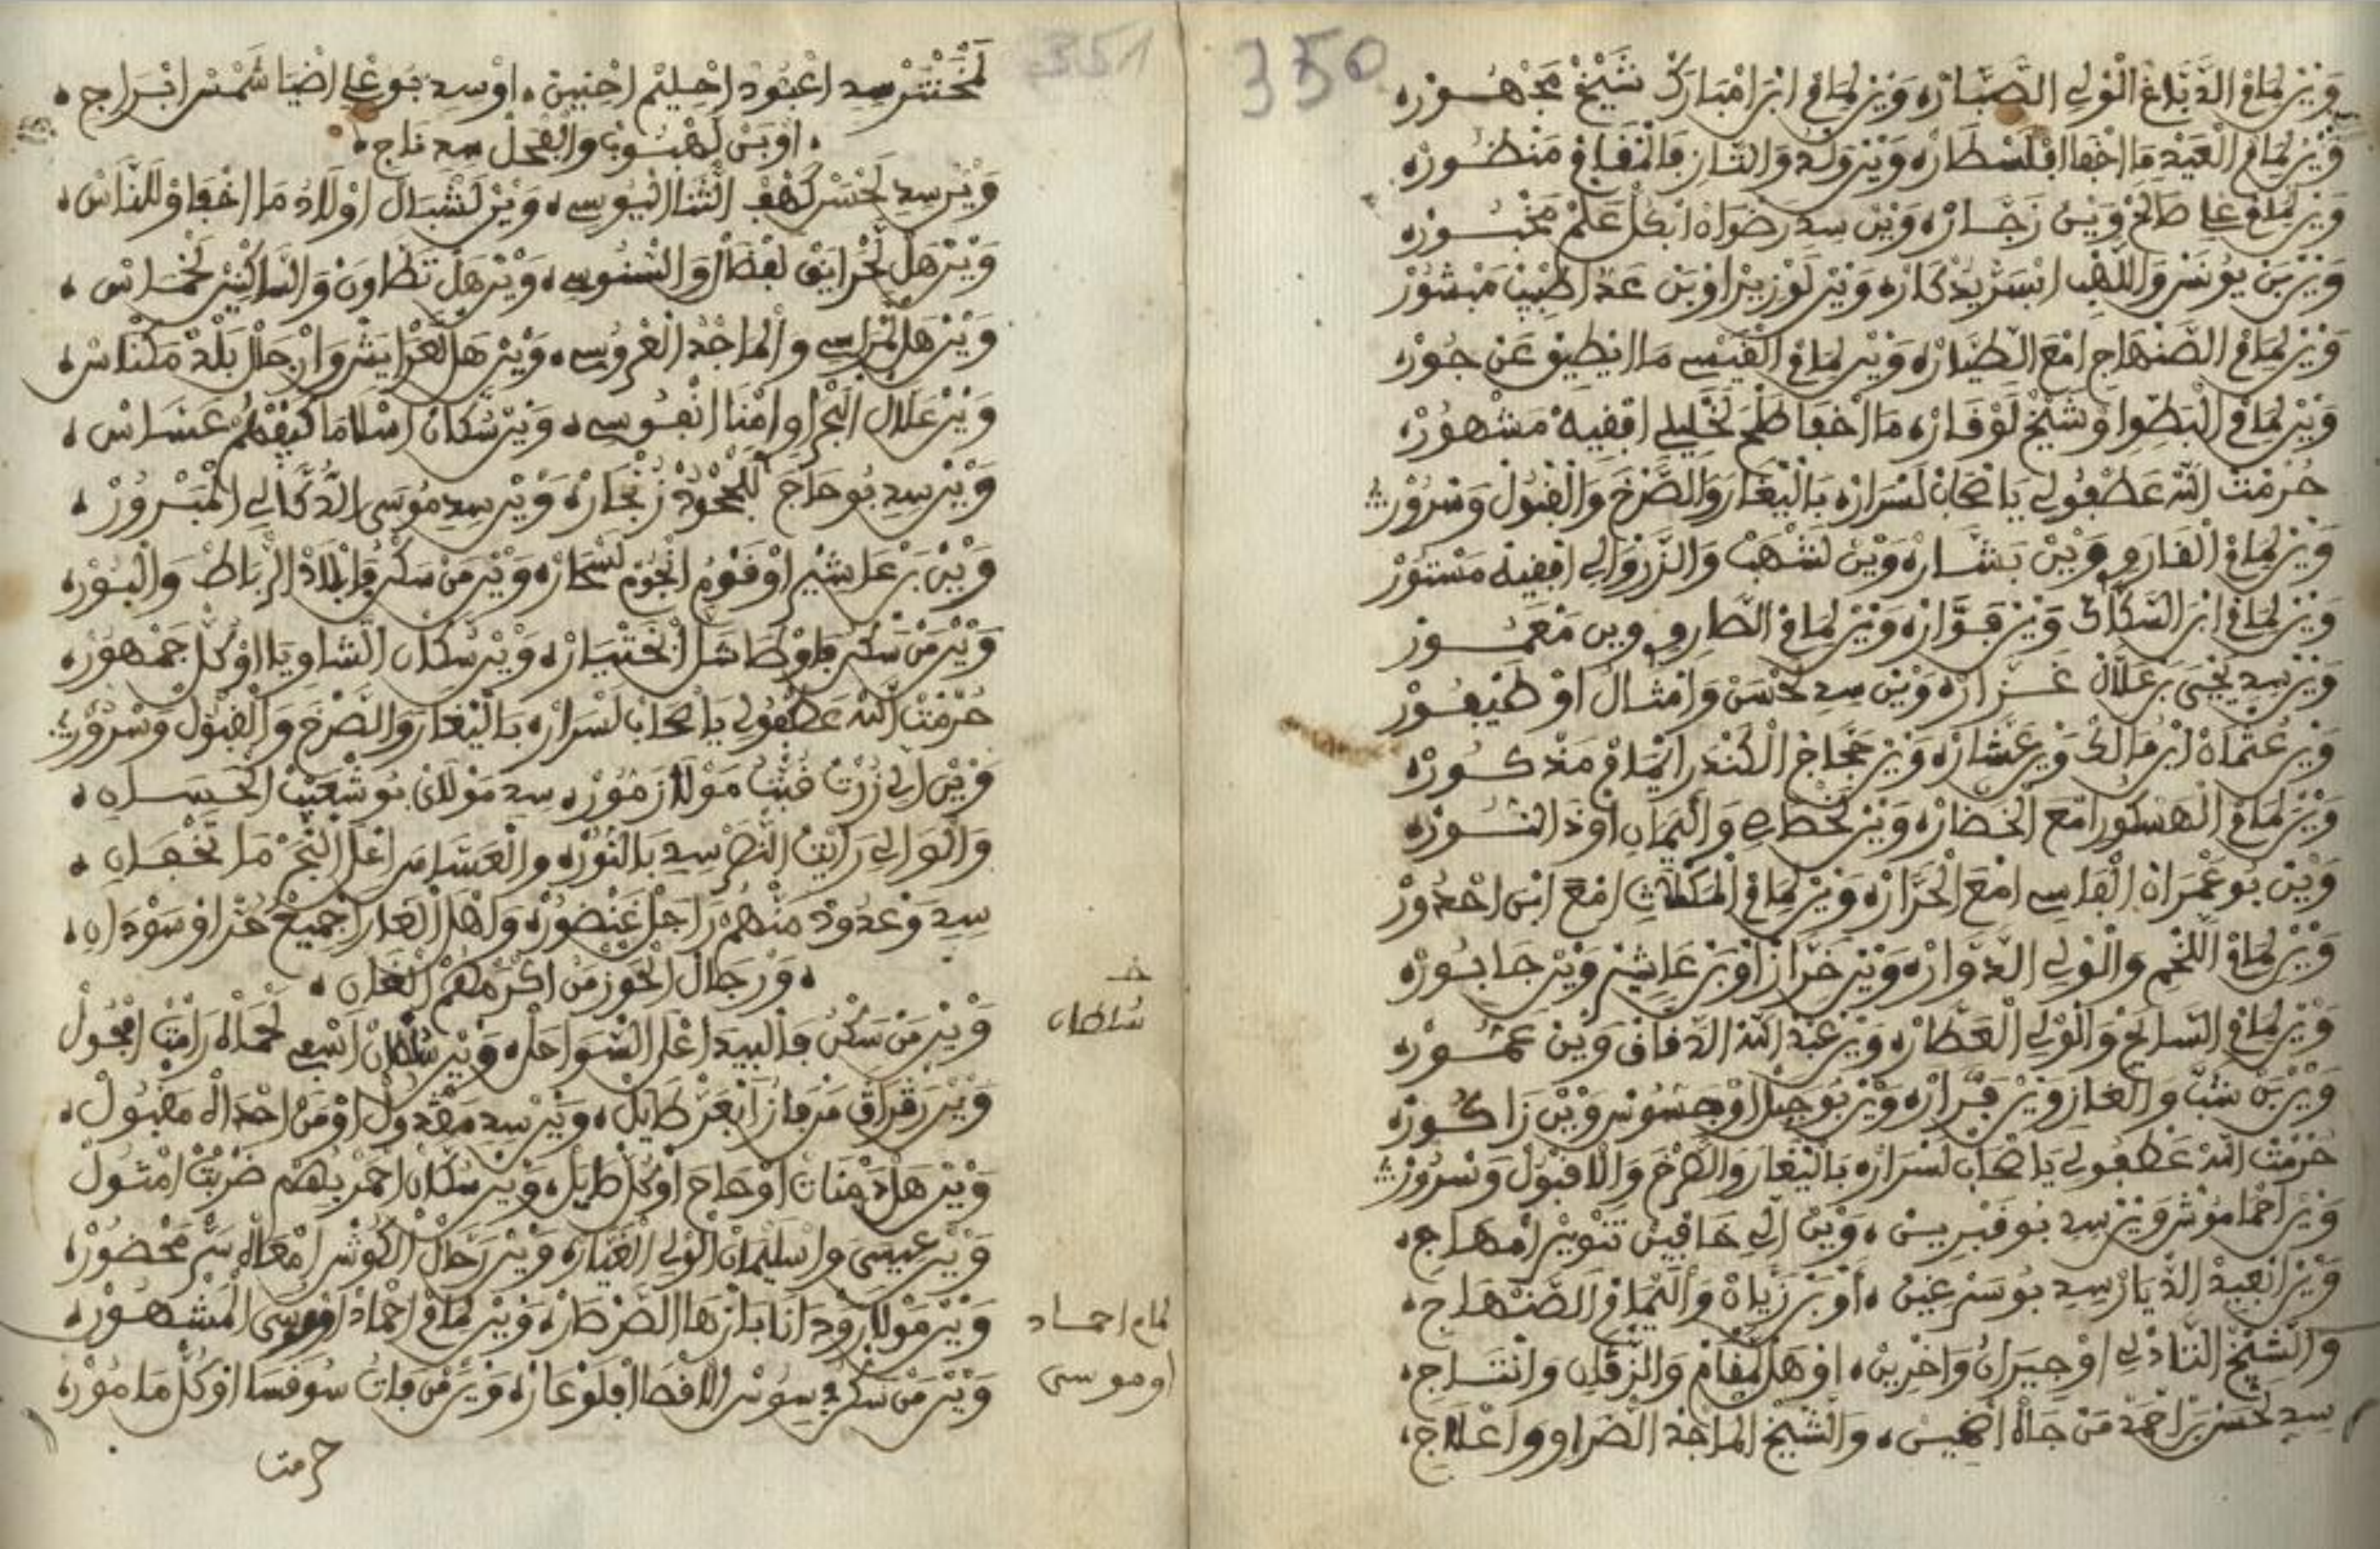 350
وَيْنْ لِمَامْ الدَّبَّاغْ الْوْلِي الصَّبَّارْه وَيْنْ لِمَامْ ابْنْ امْبَارَكْ شَيْخْ مَجْهُورْه
وَيْنْ لِمَامْ الْعَيْدْ مَا اخْفَا افْلَسْطَارْه وَيْنْ وَلْدْ وَالتَّازِ فَالمْقَامْ مَنْظُورْه
وَيْنْ لِمَامْ عْلِي صَالَحْ وَيْنْ نَجَّارْه وَيْنْ سِيدِ رَضْوَانْ ابْكُلْ عَلْمْ مَخْبُورْه
وَيْنْ بَنْ يُوسَفْ وَاللّهْبِ ابْسَرْ يَدْكَارْه وَيْنْ لَوْزِيرْ اوْبَنْ عَدْ اطْبِيبْ مَبْشُورْ
وَيْنْ لِمَامْ الصَّنْهَاجِ امْعَ الطْيَّارْه وَيْنْ لِمَامْ الْقَيْسِي مَا ايْطِيقْ عَنْ جُورْه
وَيْنْ لِمَامْ الْبَطِّوِا وْشَيْخْ لَوْقَارْه مَا اخْفَا خْلِيلِي افْقِيهْ مَشْهُورْه
حُرْمْتْ اللهْ عَطْفُولِي يَاصْحَابْ لَسْرَارْه بَالنْغَارْ وَالصَّرْخَ وَالْقْبُولْ وَسْرُورْ
وَيْنْ لِمَامْ الْفَارُو وَيْنْ بَشَّارْه وَيْنْ لَشْهَبْ وَالزَّرْوَالِي افْقِيهْ مَسْتُورْ
وَيْنْ لِمَامْ ابْنْ السَّكَّاكْ وَيْنْ فَوَّارْه وَيْنْ لِمَامْ الطَّارُو وِينْ مَعْمُورْ
وَيْنْ سِيدِ يَحْيَى بَنْ عَلَّالْ غَزَّارْه وَيْنْ سِيدِ لَحْسَنْ وَامْثَالْ اوْ طَيْفُورْ
وَيْنْ عُثْمَانْ ابْنْ مَالَكْ وَيْنْ عَشَّارْه وَيْنْ حَجَّاجْ الْكُنْدَرْ ايْمَامْ مَدْكُورْه
وَيْنْ لِمَامْ الْهَسْكُورْ امْعَ الْخَضَارْه وَيْنْ لَخْطَابِ وَالْيَمَانِ اوْ دَ النُّورْه
وَيْنْ بُوعَمْرَانْ الْفَاسِي امْعَ الْحَرَّارْه وَيْنْ لِمَامْ الْمَكْلَاتِي امْعَ ابْنْ احْدُورْ
وَيْنْ لِمَامْ اللَّخْمِ وَالْوْلِي الدَّوَّارْه وَيْنْ خَرَّازْ اوْ بَنْ عَاشِيرْ وَيْنْ جَابُورْه
وَيْنْ لِمَامْ السَّايَحْ وَالْوْلِي الْعَطَّارْه وَيْنْ عَبْدْ اللهْ الدَّقَّاقْ وَيْنْ عَمُّورْه
وَيْنْ بَنْ شَبّ وَالْغَازِ وَيْنْ قَرَّارْه وَيْنْ بُوجِيدَا اوْ حَسُّونْ وَيْنْ زَاكُورْه
حُرْمْتْ اللهْ عَطْفُولِي يَاصْحَابْ لَسْرَارْه بَالنْغَارْ وَالصَّرْخَ وَالاقْبُولْ وَسْرُورْ
وَيْنْ احْمَامُوشْ وَيْنْ سِيدِ بُوقَبْرِينْ، وَيْنْ الِّي خَافِينْ تَنْوِيرْ امْهَاجْ،
وَيْنْ ابْعِيدْ الدْيَارْ سِيدِ بُوسَرْغِينْ، اوْ بَنْ زَيَّانْ وَالِيمَامْ الصَّنْهَاجِ،
وَالشَّيْخْ التَّادْلِي اوْ جِيرَانْ وَاخْرِينْ، اوْ هَلْ لَمْقَامْ وَالزَّقَانِ وَانْتَاجْ،
سِيدِ لَحْسَنْ بَنْ احْمَدْ مَنْ جَاهْ اضْمِينْ، وَالشَّيْخْ الْمَاجْدْ الضْرَاوِ وَاعْلَاجْ،
351
لَخْنْتَرْ سِيدِ اعْبُودْ احْلِيمْ احْنِينْ، اوْ سِيدِ بَوْعْلِي اضْيَا شَمْسْ ابْرَاجْ،
، اوْ بَنْ لَهْبُوبْ وَالْفْحَلْ سِيدِ نَاجِ،
وَيْنْ سِيدِ لَحْسَنْ كَهْفْ الثْنَا الْيُوسِي، وَيْنْ لَشْبَالْ اوْلَادْ مَا اخْفَاوْ لَلنَّاسْ،
وَيْنْ هَلْ لَخْرَايَقْ لَفْضَالْ وَالسْنُوسِي، وَيْنْ هَلْ تَطَّاوَنْ وَالسَّاكْنِينْ لَخْمَاسْ،
وَيْنْ هَلْ الْمْرَاسِي وَالْمَاجْدْ الْعْرُوسِي، وَيْنْ هَلْ لَعْرَايَشْ وَارْجَالْ بَلْدْ مَكْنَاسْ،
وَيْنْ عَلَّالْ الْبْحَرْ اوِ امْنَا انْفُوسِي، وَيْنْ سُكَّانْ اسْلَا مَا كِيفْهُمْ عَسَّاسْ،
وَيْنْ سِيدِ بُوحَاجَ لَلْجُودْ زَنْجَارْه وَيْنْ سِيدِ مُوسَى الدُّكَّالِي الْمَبْرُورْ،
وَيْنْ بَنْ عَاشِيرْ اوْ قَوْمْ انْجُومْ لَسْحَارْه وَيْنْ مَنْ سَكْنْ فَابْلَادْ الرِّبَاطْ وَالْبُورْه
وَيْنْ مَنْ سَكْنْ فَاوْطَا شَلَّ ابْخَتْيَارْه وَيْنْ سُكَّانْ الشَّاوْيَا اوْكُلْ جَمْهُورْه
حُرْمْتْ اللهْ عَطْفُولِي يَاصْحَابْ لَسْرَارْه بَالنْغَارْ وَالصَّرْخَ وَالْقْبُولْ وَسْرُورْ
وَيْنْ الِّي زُرْتْ قُبّْتْ مَوْلَا زَمُّورْ، سِيدِ مَوْلَايْ بُوشْعَيْبْ الْحَسَّانِ،
وَالْوَالِي رَايْتْ النّْصَرْ سِيدِ بَالنُّورْه وَالْعَسَّاسْ اعْلَى الْبْحَرْ مَا يَخْفَانِ،
سِيدِ وَعْدُودْ مَنْهُمْ رَاجْلْ غَنْضُورْه وَاهْلْ الْغَارْ اجْمِيعْ حُرْ اوْ سَوْدَانِ،
، وَرْجَالْ الْحَوْزْ مَنْ اكْرَمْهُمْ الْغَانِ،
وَيْنْ مَنْ سَكْنْ فَالْبِيدَ اعْلَى السّْوَاحَلْه وَيْنْ سُلْطَانْ اسْفِي لَحْمَاهْ رَامْتْ افْحُولْ
وَيْنْ رَقْرَاقْ مَنْ فَازْ ابْعَزْ طَايْلْ، وَيْنْ سِيدِ مَقْدُولْ اوْ مَنْ احْدَاهْ مَقْبُولْ،
وَيْنْ هَلْ دَمْنَاتْ اوْ حَاحَ اوْكُلْ طَايْلْ، وَيْنْ سُكَّانْ احْمَرْ بِهُمْ ضَرْبْتْ امْثُولْ
وَيْنْ عِيسَى وَاسْلِيمَانْ الْوْلِي الْغْيَارْه وَيْنْ رَحَّالْ الْكُوشْ امْعَاهْ سَرْ مَحْضُورْه
وَيْنْ مَوْلَا رَوْدَانَا بَازْهَا الضَّرْطَارْه وَيْنْ لِمَامْ احْمَادْ اوْمُوسَى الْمَشْهُورْ،
وَيْنْ مَنْ سَكْنْ فِي سُوسْ الاقْصَا افْلَوْعَارْه وَيْنْ مَنْ فَاتْ سُوقْسَا اوْكُلْ مَامُورْه
حرمت
سُلطان
لمام احماد
اوموسى